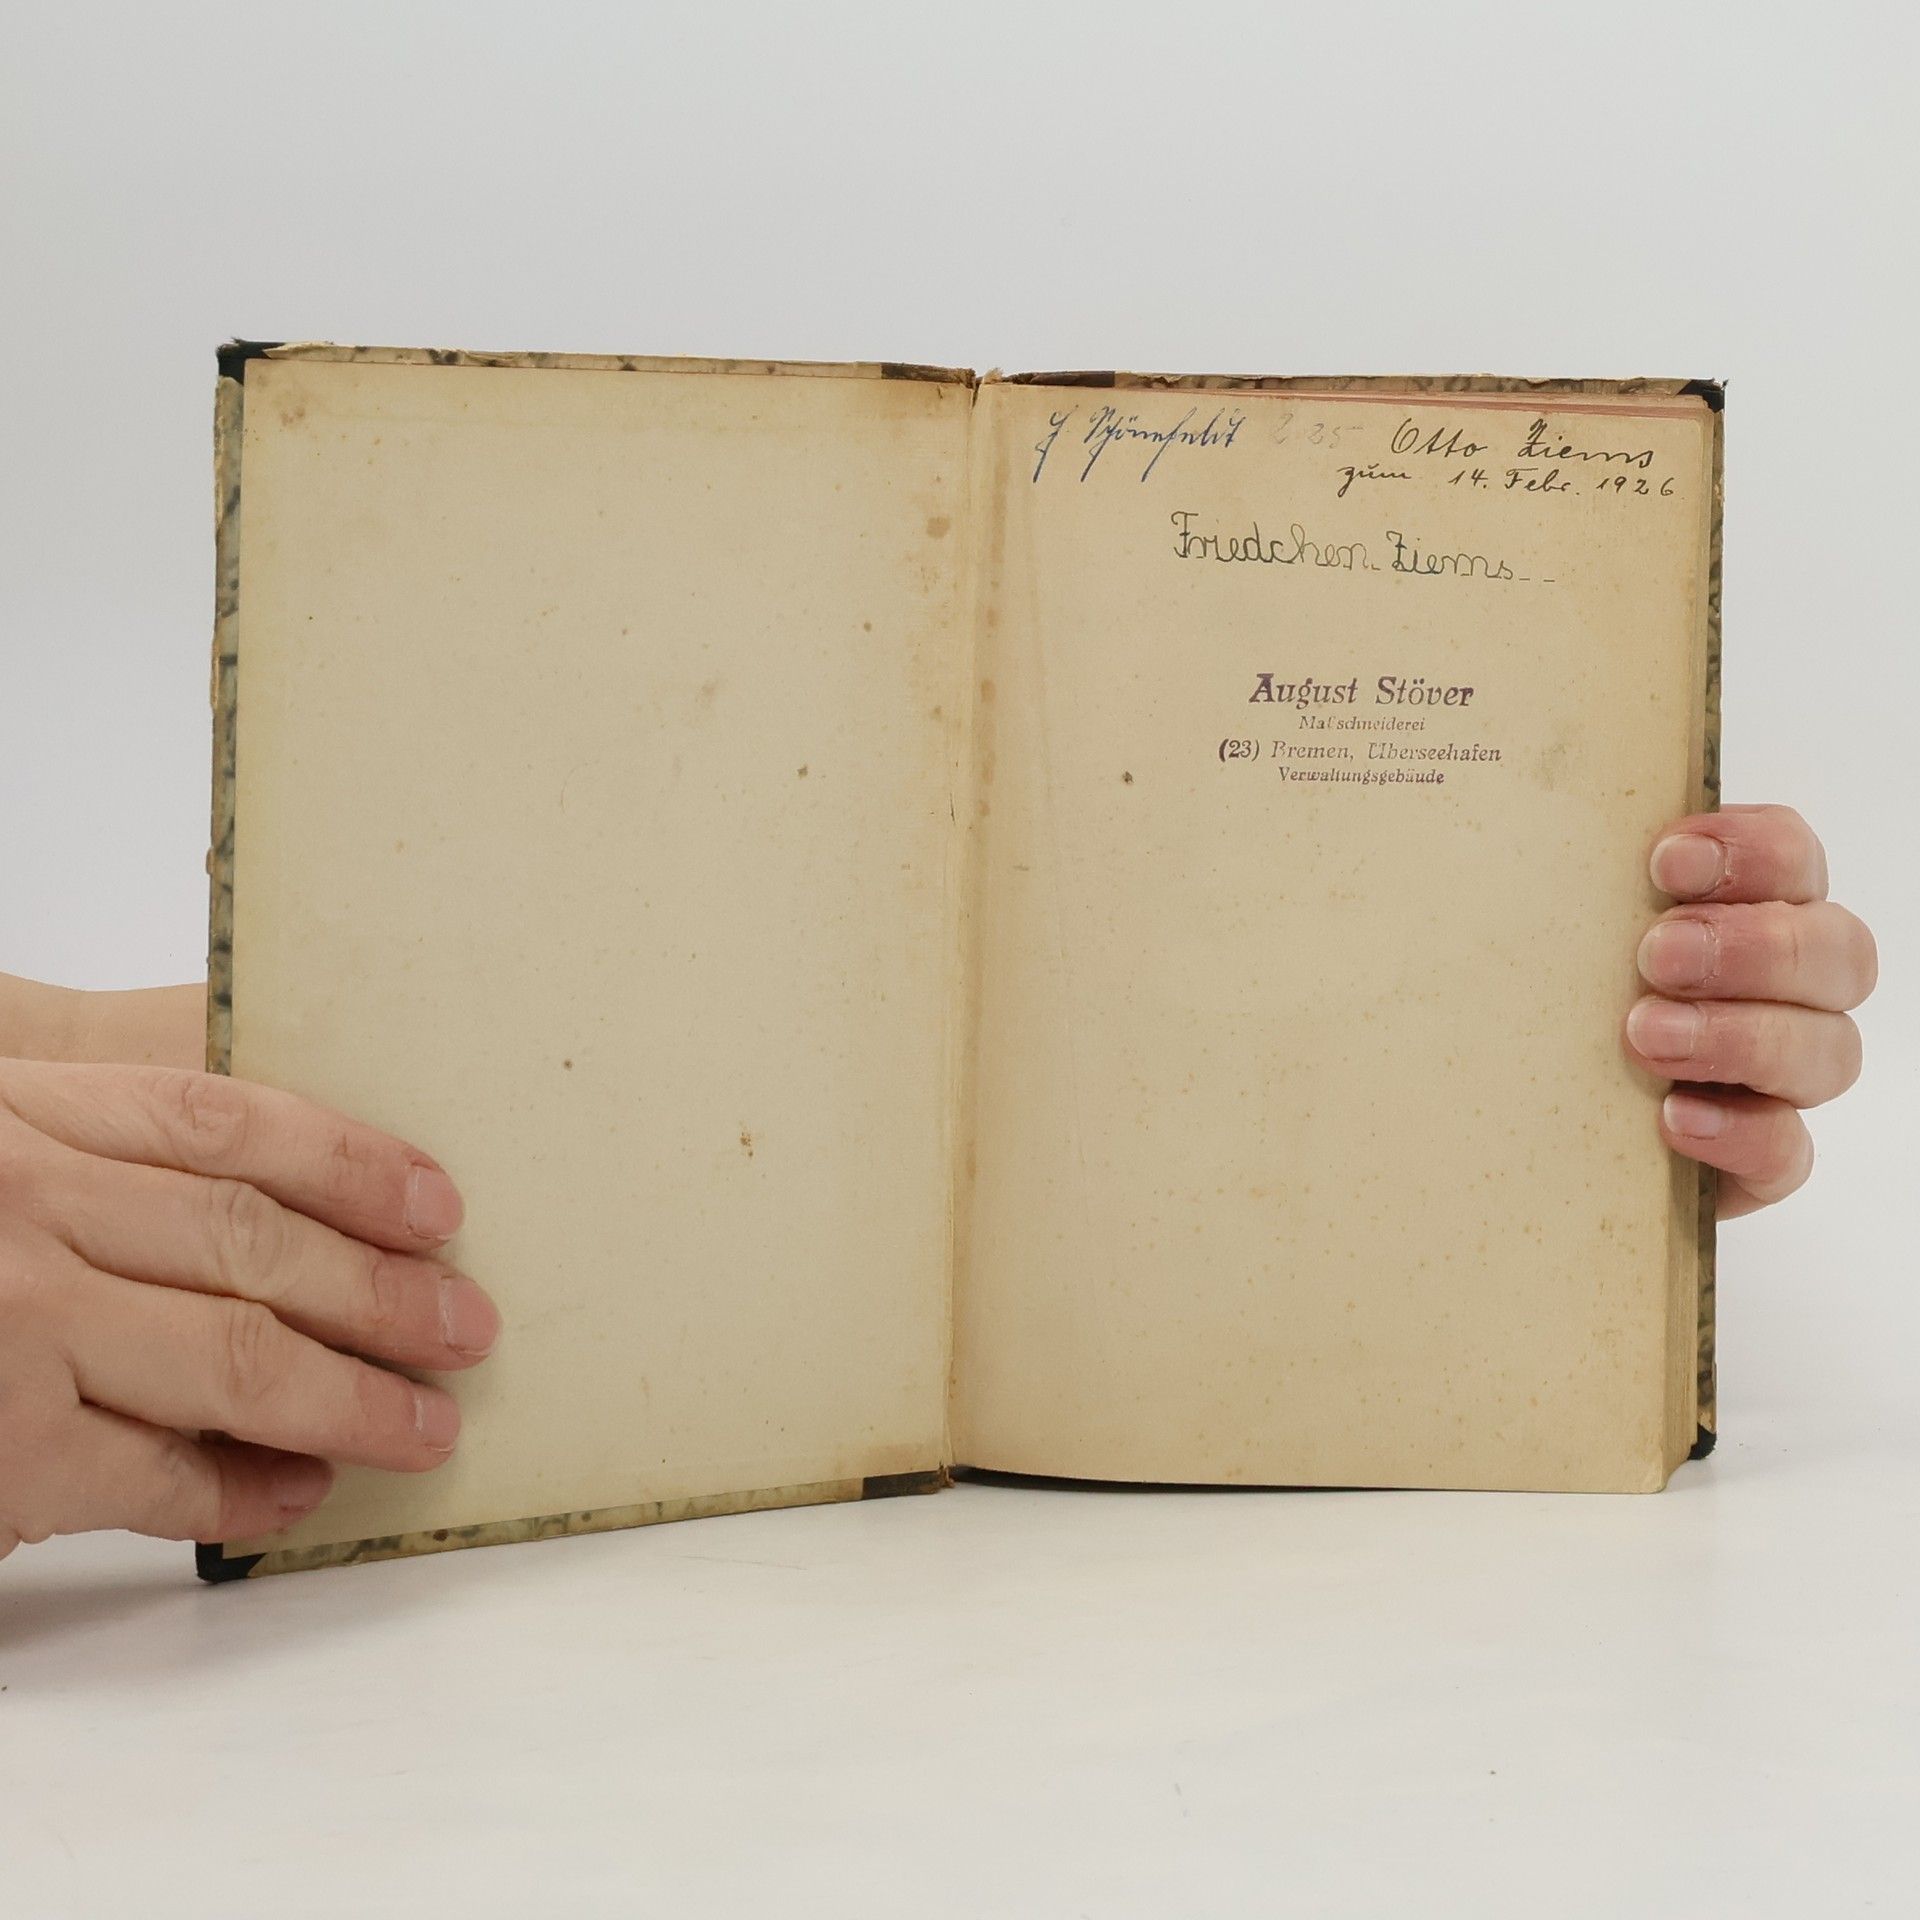 H. Schönefeldt 2 25 Otto Ziems
zum 14. Febr. 1926.
Friedchen Ziems
August Stöver
Maßschneiderei
(23) Bremen, Überseehafen
Verwaltungsgebäude